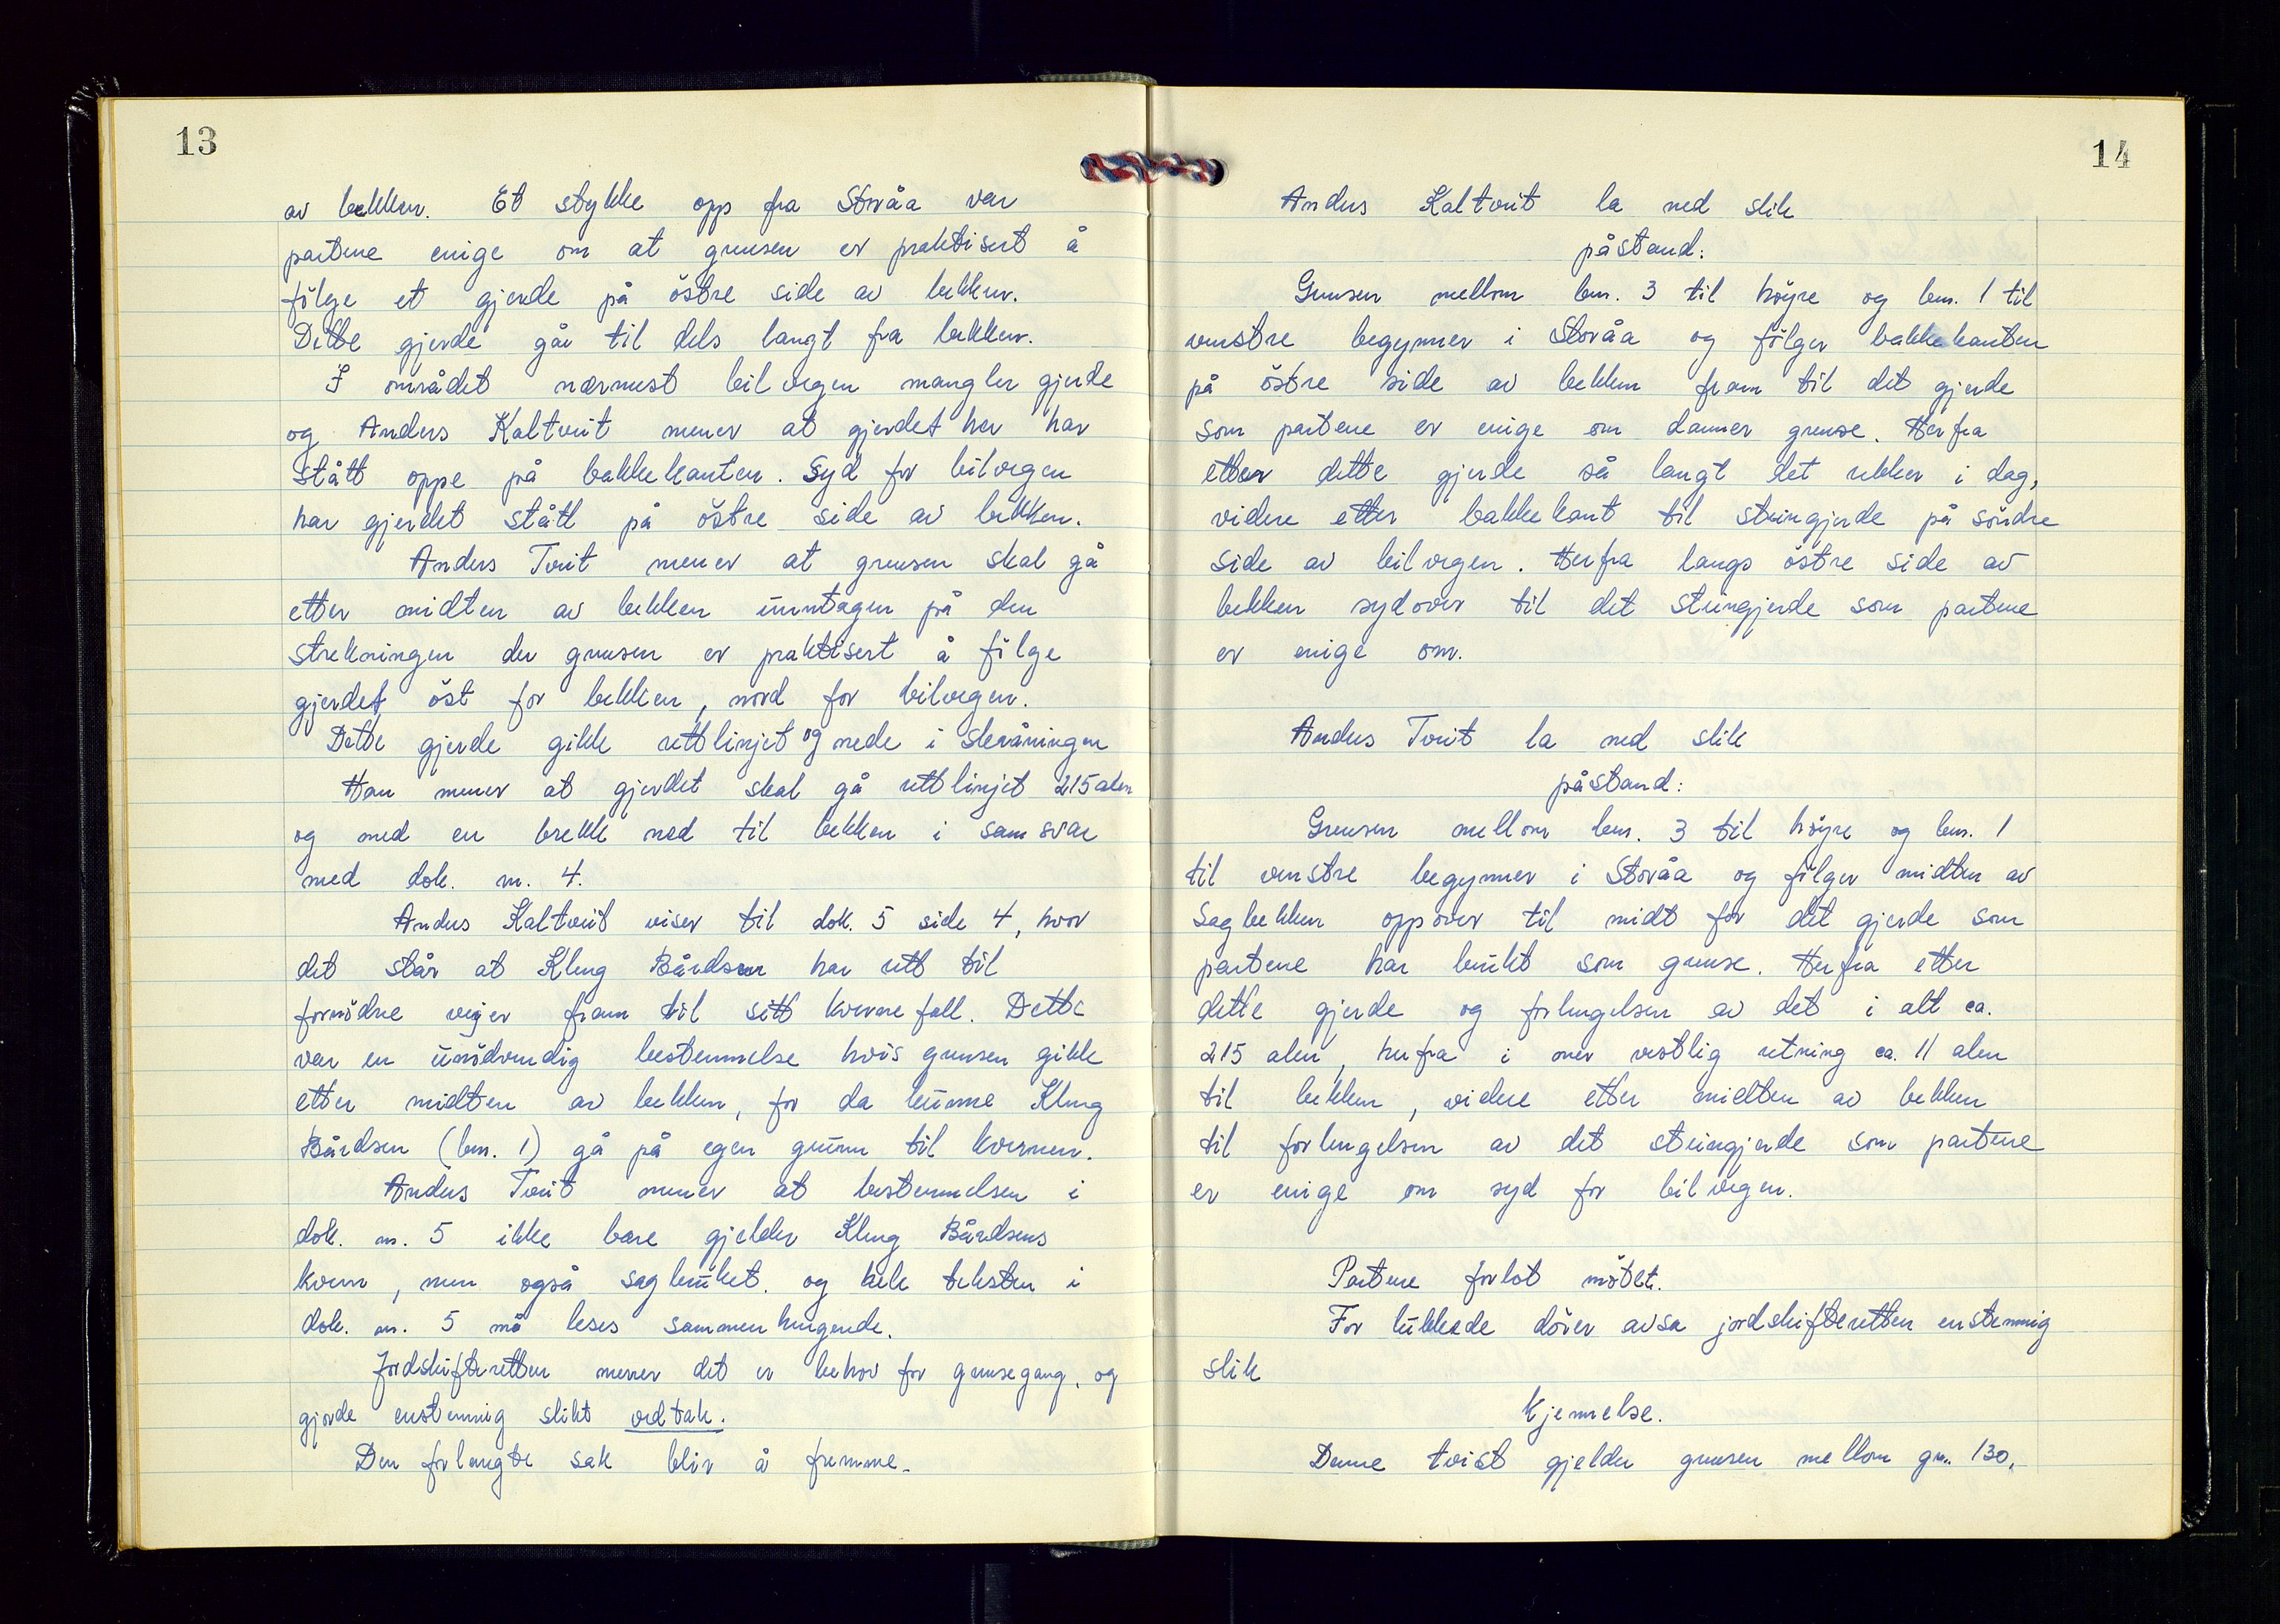 13
av bekken. Et stykke opp fra Storåa var
partene enige om at grensen er praktisert å
følge et gjerde på østre side av bekken.
Dette gjerde går til dels langt fra bekken.
I området nærmest bilvegen mangler gjerde
og Anders Kaltveit mener at gjerdet her har
stått oppe på bakkekanten. Syd for bilvegen
har gjerdet stått på østre side av bekken.
Anders Tveit mener at grensen skal gå
etter midten av bekken unntagen på den
strekningen der grensen er praktisert å følge
gjerdet øst for bekken, nord for bilvegen.
Dette gjerde gikk rettlinjet og nede i skråningen
Han mener at gjerdet skal gå rettlinjet 215 alen
og med en brekk ned til bekken i samsvar
med dok. nr. 4.
Anders Kaltveit viser til dok. 5 side 4, hvor
det står at Kleng Bårdsen har rett til
fornødne veger fram til sitt kvernefall. Dette
var en unødvendig bestemmelse hvis grensen gikk
etter midten av bekken, for da kunne Kleng
Bårdsen (bnr. 1) gå på egen grunn til kvernen.
Anders Tveit mener at bestemmelsen i
dok. nr. 5 ikke bare gjelder Kleng Bårdsens
kvern, men også sagbruket. og hele teksten i
dok. nr. 5 må leses sammenhengende.
Jordskifteretten mener det er behov for grensegang, og
gjorde enstemmig slikt vedtak.
Den forlangte sak blir å fremme.
14
Anders Kaltveit la ned slik
påstand:
Grensen mellom bnr. 3 til høyre og bnr. 1 til
venstre begynner i Storåa og følger bakkekanten
på østre side av bekken fram til det gjerde
som partene er enige om danner grense. Herfra
etter dette gjerde så langt det rekker i dag,
videre etter bakkekant til steingjerde på søndre
side av bilvegen. Herfra langs østre side av
bekken sydover til det steingjerde som partene
er enige om.
Anders Tveit la ned slik
påstand:
Grensen mellom bnr. 3 til høyre og bnr. 1
til venstre begynner i Storåa og følger midten av
Sagbekken oppover til midt for det gjerde som
partene har brukt som grense. Herfra etter
dette gjerde og forlengelsen av det i alt ca.
215 alen, herfra i mer vestlig retning ca. 11 alen
til bekken, videre etter midten av bekken
til forlengelsen av det steingjerde som partene
er enige om syd for bilvegen.
Partene forlot møtet.
For lukkede dører avsa jordskifteretten enstemmig
slik
Kjennelse.
Denne tvist gjelder grensen mellom gnr. 130,